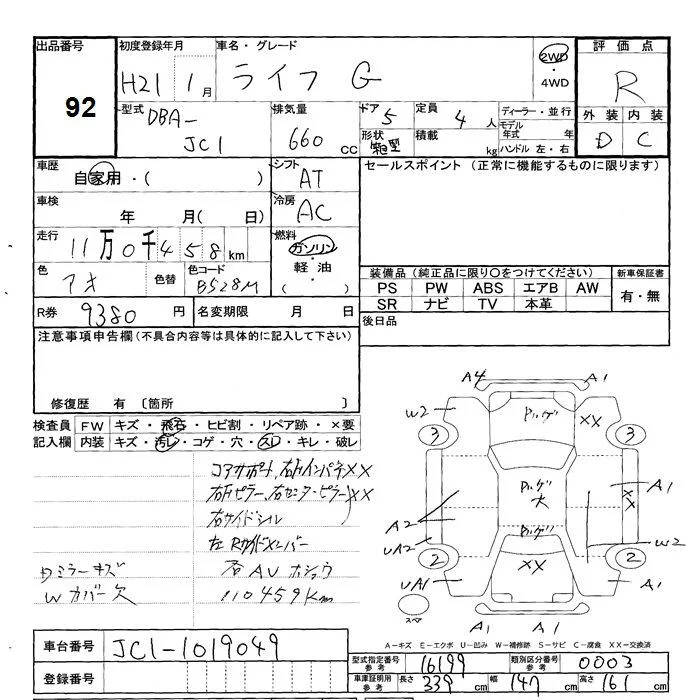 出品番号 初度登録年月 車名・グレード 評価点
92 H21 1月 ライフ G 2WD・4WD R
型式 DBA-JC1 排気量 660cc ドア 5 形状 箱型 定員 4人 積載 kg ディーラー・並行 モデル年式 年 ハンドル 左・右 外装 D 内装 C
車歴 自家用・( ) シフト AT セールスポイント (正常に機能するものに限ります)
車検 年 月( 日) 冷房 AC
走行 11万0千458km 燃料 ガソリン・軽油・( )
色 アオ 色替 色コード B528M
装備品 (純正品に限り○をつけてください) 新車保証書
PS PW ABS エアB AW 有・無
SR ナビ TV 本革
R券 9380円 名変期限 月 日 後日品
注意事項申告欄(不具合内容等は具体的に記入して下さい)
修復歴 有 〔箇所
検査員記入欄 FW キズ・飛石・ヒビ割・リペア跡・×要
内装 キズ・汚レ・コゲ・穴・スレ・キレ・破レ
コアサポート、右Fインパネ××
右Fピラー、右センターピラー××
右サイドシル
左Rサイドメンバー
Dミラーキズ
Wカバー欠
110459Km
A4 A1
W2 Pバゲ ××
3 3
Pバゲ大 ×× A1
A2
UA2 Pバゲ W2
2 ×× 2
UA1 A1
スペア A1 A1
A-キズ E-エクボ U-凹み W-補修跡 S-サビ C-腐食 XX-交換済
車台番号 JC1-1019049
登録番号
型式指定番号 参考 16199 類別区分番号 参考 0003
車庫証明用 参考 長さ 339cm 幅 147cm 高さ 161cm